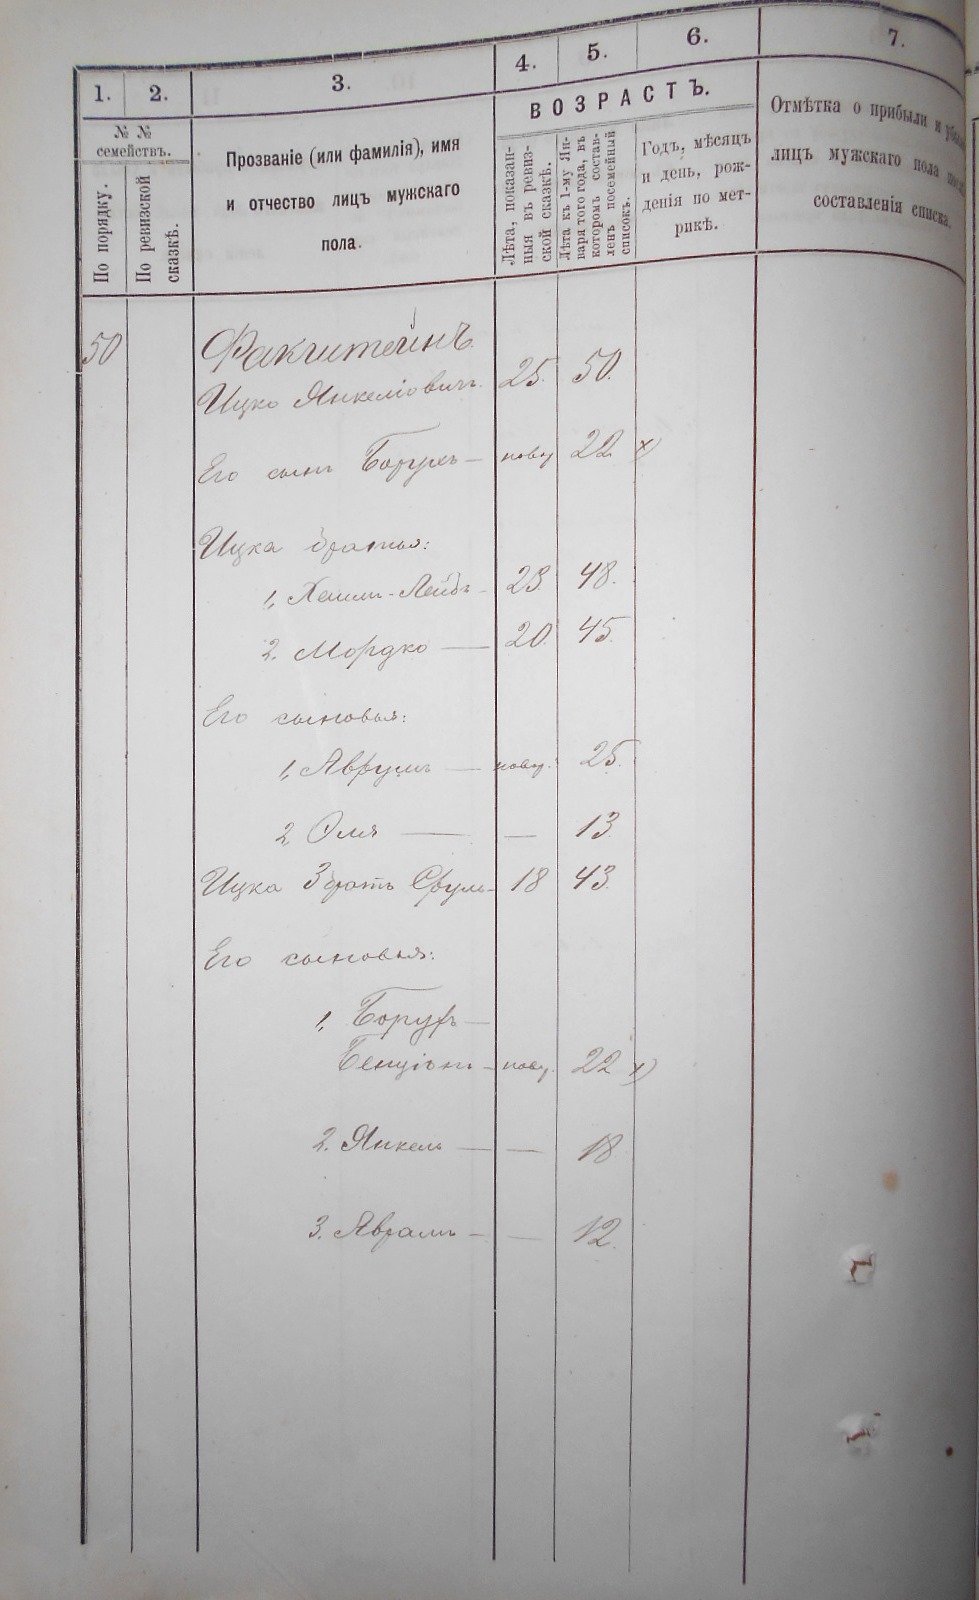 1. 2. 3. 4. 5. 6. 7.
№ № семействъ.
По порядку.
По ревизской сказкѣ.
Прозваніе (или фамилія), имя
и отчество лицъ мужскаго
пола.
ВОЗРАСТЪ.
Лѣта, показан-
ныя въ ревиз-
ской сказкѣ.
Лѣта къ 1-му Ян-
варя того года, въ
которомъ состав-
ленъ посемейный
списокъ.
Годъ, мѣсяцъ
и день, рож-
денія по мет-
рикѣ.
Отмѣтка о прибыли и
лицъ мужскаго пола
составленія списка.
50 Факштейнъ
Ицко Янкеліовичъ. 25. 50.
Его сынъ Борухъ — нову 22 х)
Ицка братья:
1, Хаимъ-Лейбъ - 23. 48.
2. Мордко — 20. 45.
Его сыновья:
1, Аврумъ — нову. 25.
2, — — 13.
Ицка 3 братъ Сруль - 18 43.
Его сыновья:
1, Борухъ —
Бенціонъ - нову. 22 х)
2. Янкель — — 18.
3. Аврамъ - — 12.